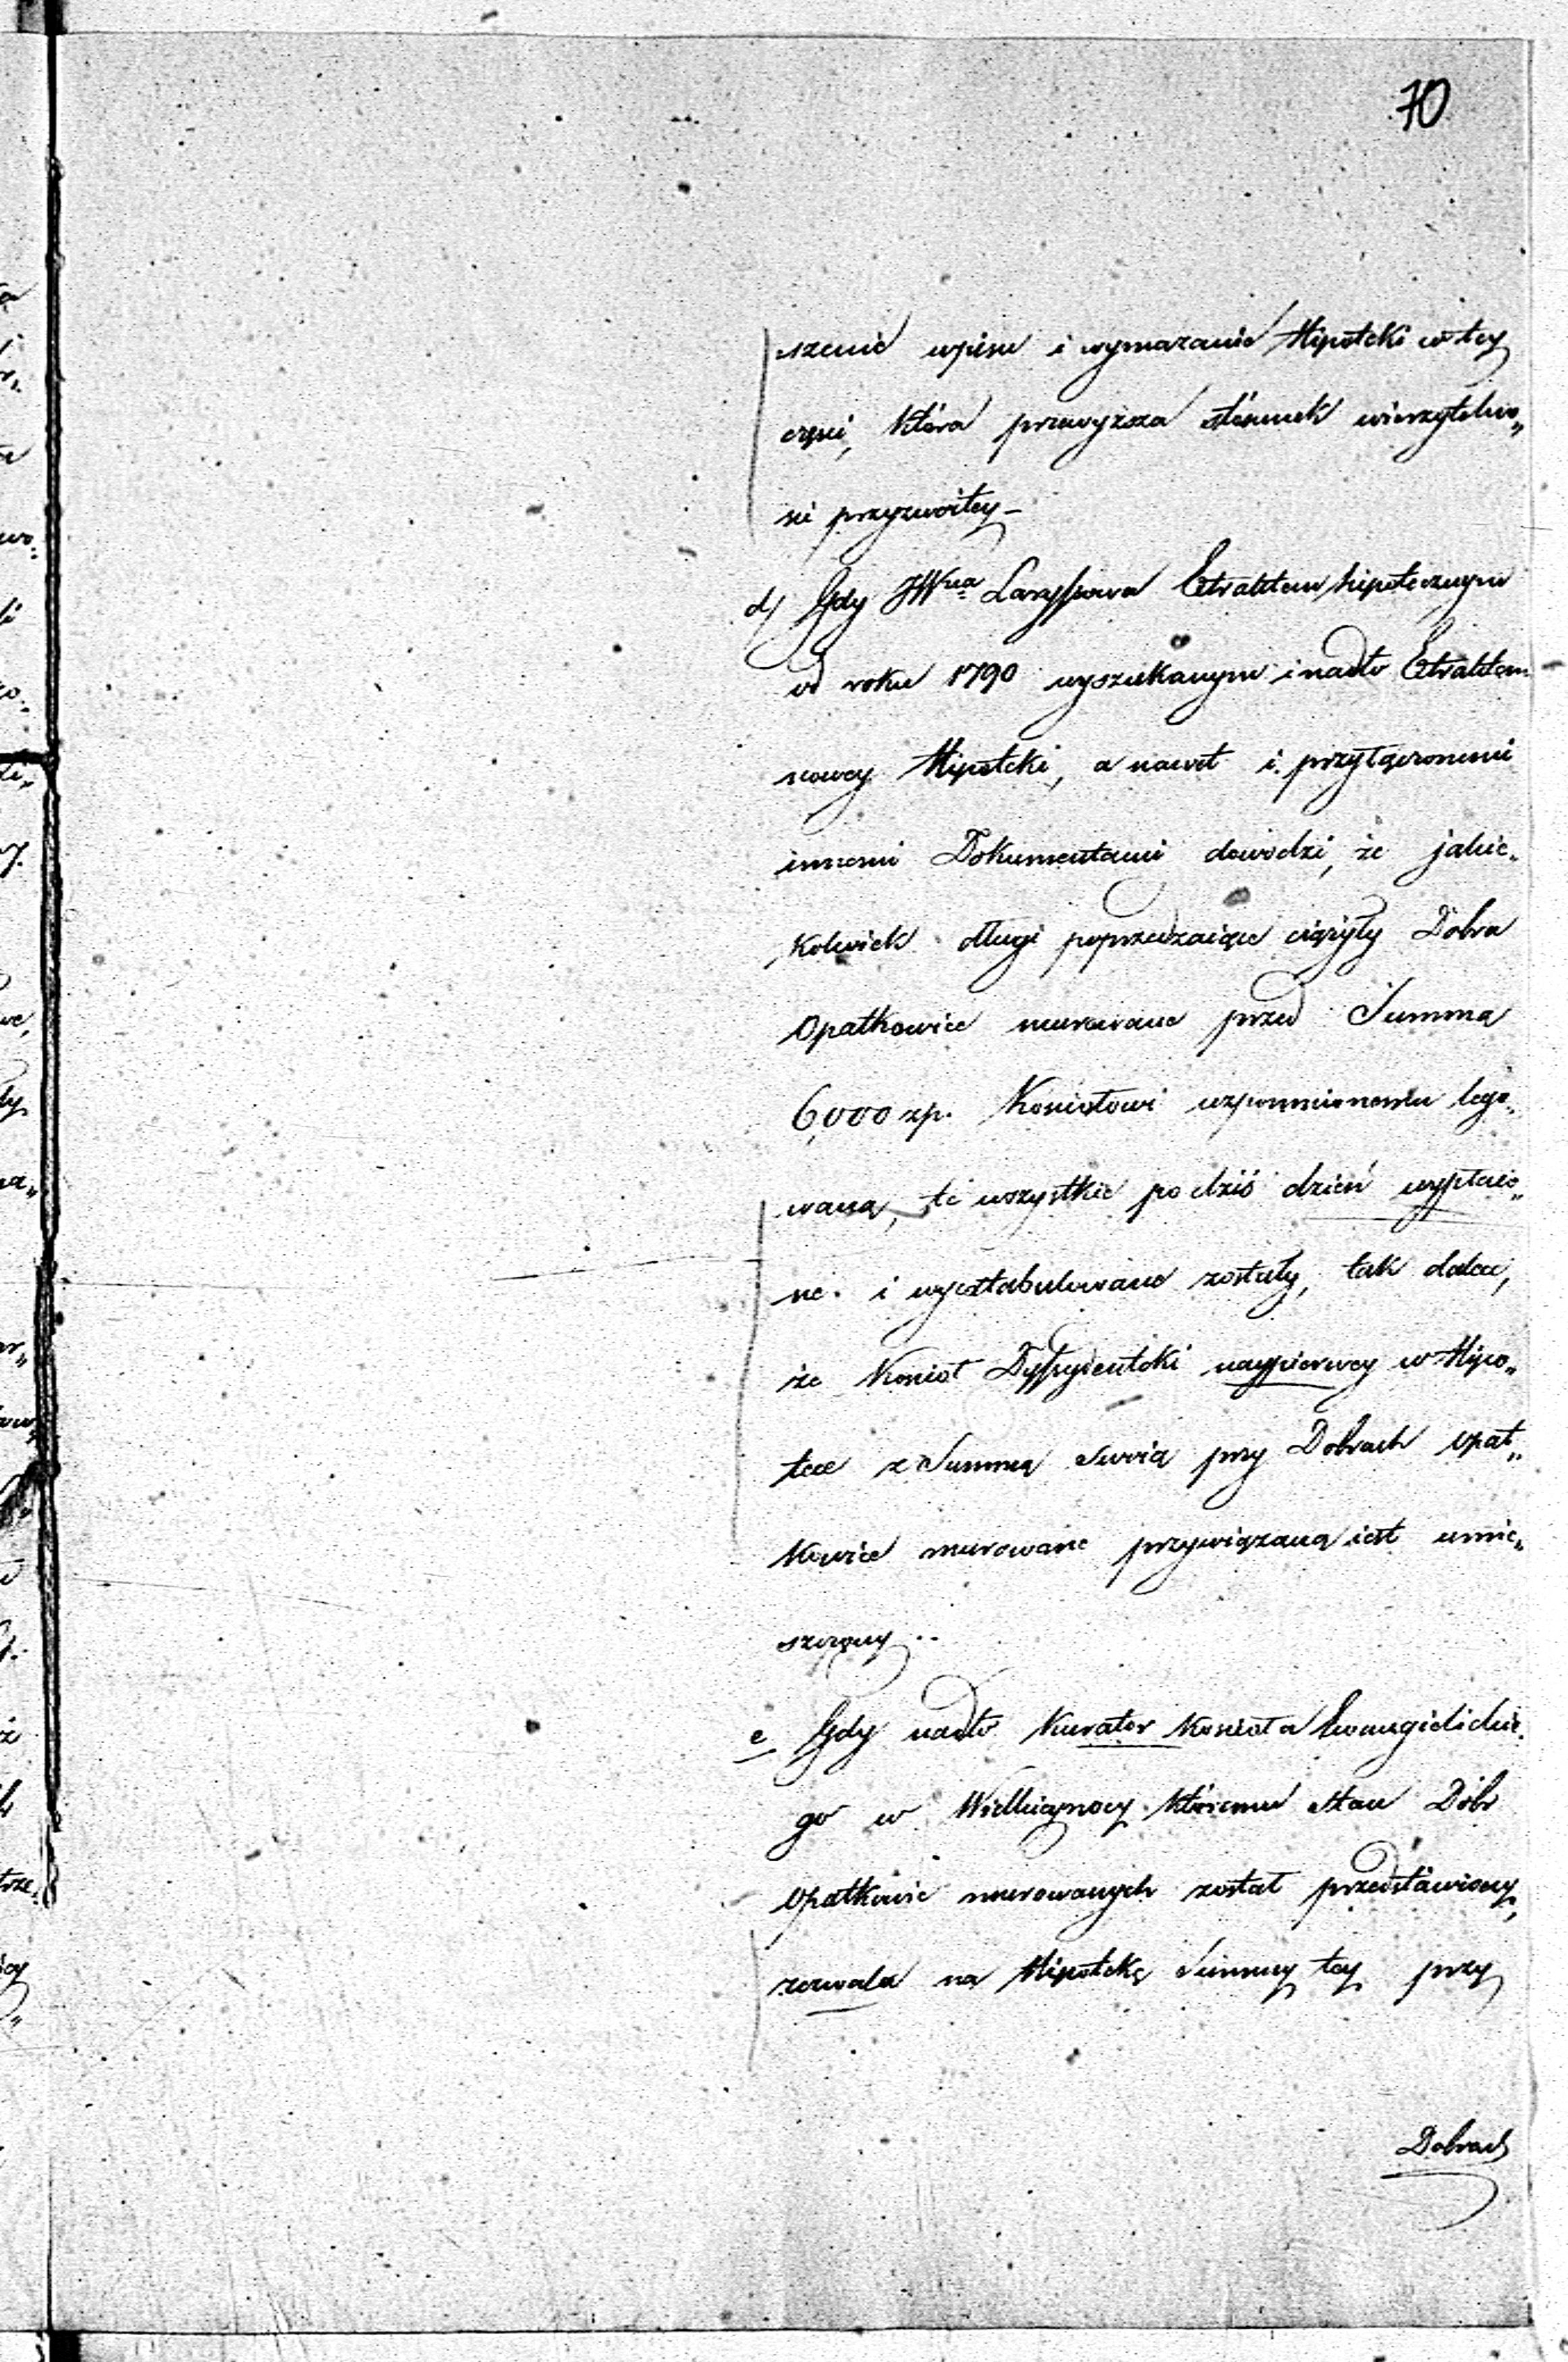 70
szenie wpisu i wymazanie Hipoteki w tey
częsci, która przewyższa stósunek wierzytelno„
sci przyzwoitey –
d) Gdy JWna Laryssowa Extraktem hipotecznym
od roku 1790 wyszukanym i nadto Extraktem
nowey Hipoteki, a nawet i przyłączonemi
innemi Dokumentami dowodzi, że jakie„
kolwiek długi poprzedzaiące ciążyły Dobra
Opatkowice murowane przed Summą
6,000 zp. Kosciołowi wzpomnionemu lego„
waną, te wszystkie po dziś dzień wypłaco„
ne. i wyextabulowane zostały, tak dalece,
że Koscioł Dyssydentski naypierwey w Hipo„
tece z Summą Swoią przy Dobrach Opat„
kowice murowane przywiązaną iest umie„
szczony ..
e Gdy nadto Kurator Koscioła Ewangielickie„
go w Wielkieynocy któremu Stan Dóbr
Opatkowic murowanych został przedstawiony,
zezwala na Hipotekę Summy tey przy
Dobrach